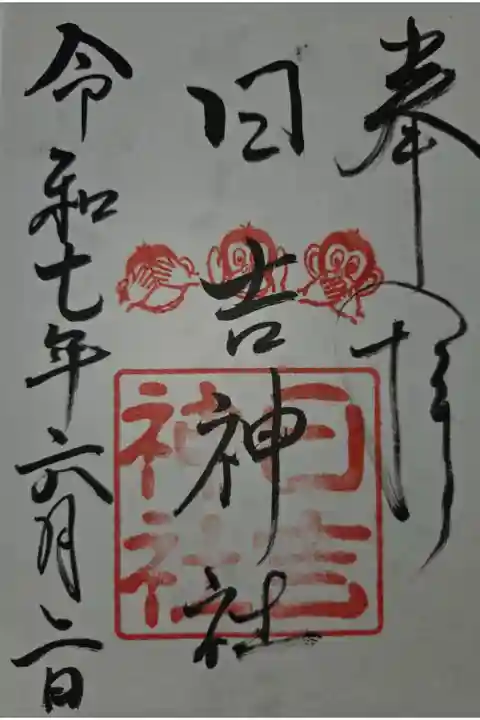 奉拝
日吉神社
日吉神社
令和七年六月二日